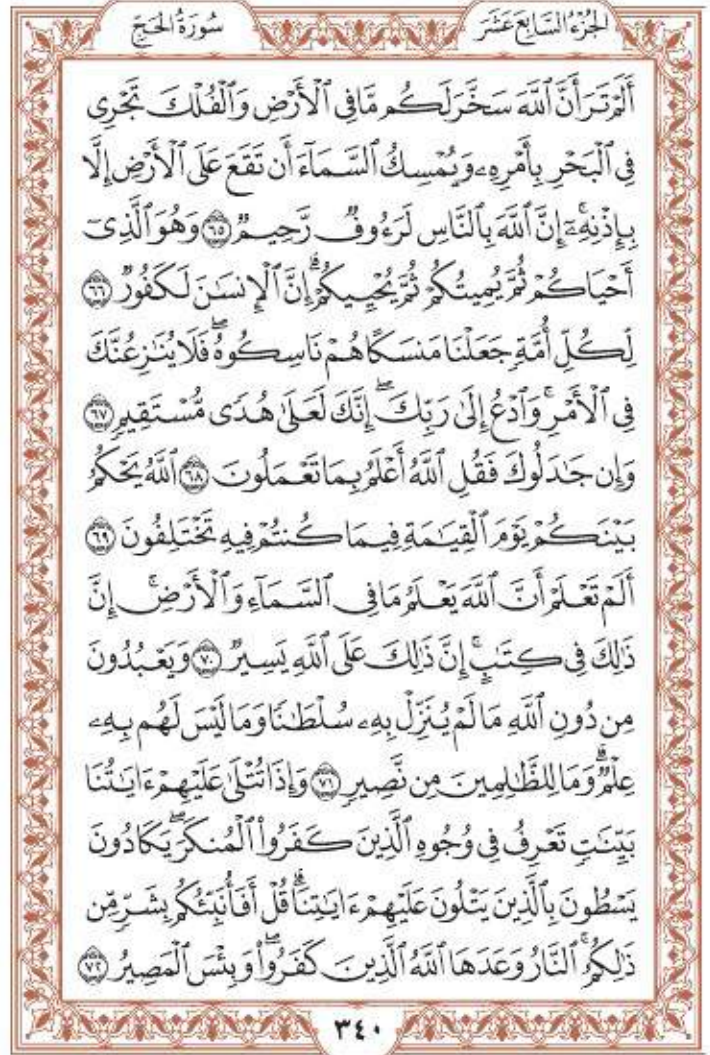 الجُزْءُ السَّابِعَ عَشَرَ
سُورَةُ الحَجِّ
أَلَمْ تَرَ أَنَّ ٱللَّهَ سَخَّرَ لَكُم مَّا فِى ٱلْأَرْضِ وَٱلْفُلْكَ تَجْرِى
فِى ٱلْبَحْرِ بِأَمْرِهِۦ وَيُمْسِكُ ٱلسَّمَآءَ أَن تَقَعَ عَلَى ٱلْأَرْضِ إِلَّا
بِإِذْنِهِۦٓ ۗ إِنَّ ٱللَّهَ بِٱلنَّاسِ لَرَءُوفٌ رَّحِيمٌ ٦٥ وَهُوَ ٱلَّذِىٓ
أَحْيَاكُمْ ثُمَّ يُمِيتُكُمْ ثُمَّ يُحْيِيكُمْ ۗ إِنَّ ٱلْإِنسَٰنَ لَكَفُورٌ ٦٦
لِّكُلِّ أُمَّةٍ جَعَلْنَا مَنسَكًا هُمْ نَاسِكُوهُ ۖ فَلَا يُنَٰزِعُنَّكَ
فِى ٱلْأَمْرِ ۚ وَٱدْعُ إِلَىٰ رَبِّكَ ۖ إِنَّكَ لَعَلَىٰ هُدًى مُّسْتَقِيمٍ ٦٧
وَإِن جَٰدَلُوكَ فَقُلِ ٱللَّهُ أَعْلَمُ بِمَا تَعْمَلُونَ ٦٨ ٱللَّهُ يَحْكُمُ
بَيْنَكُمْ يَوْمَ ٱلْقِيَٰمَةِ فِيمَا كُنتُمْ فِيهِ تَخْتَلِفُونَ ٦٩
أَلَمْ تَعْلَمْ أَنَّ ٱللَّهَ يَعْلَمُ مَا فِى ٱلسَّمَآءِ وَٱلْأَرْضِ ۗ إِنَّ
ذَٰلِكَ فِى كِتَٰبٍ ۚ إِنَّ ذَٰلِكَ عَلَى ٱللَّهِ يَسِيرٌ ٧٠ وَيَعْبُدُونَ
مِن دُونِ ٱللَّهِ مَا لَمْ يُنَزِّلْ بِهِۦ سُلْطَٰنًا وَمَا لَيْسَ لَهُم بِهِۦ
عِلْمٌ ۗ وَمَا لِلظَّٰلِمِينَ مِن نَّصِيرٍ ٧١ وَإِذَا تُتْلَىٰ عَلَيْهِمْ ءَايَٰتُنَا
بَيِّنَٰتٍ تَعْرِفُ فِى وُجُوهِ ٱلَّذِينَ كَفَرُوا۟ ٱلْمُنكَرَ ۖ يَكَادُونَ
يَسْطُونَ بِٱلَّذِينَ يَتْلُونَ عَلَيْهِمْ ءَايَٰتِنَا ۗ قُلْ أَفَأُنَبِّئُكُم بِشَرٍّ مِّن
ذَٰلِكُمُ ۗ ٱلنَّارُ وَعَدَهَا ٱللَّهُ ٱلَّذِينَ كَفَرُوا۟ ۖ وَبِئْسَ ٱلْمَصِيرُ ٧٢
٣٤٠